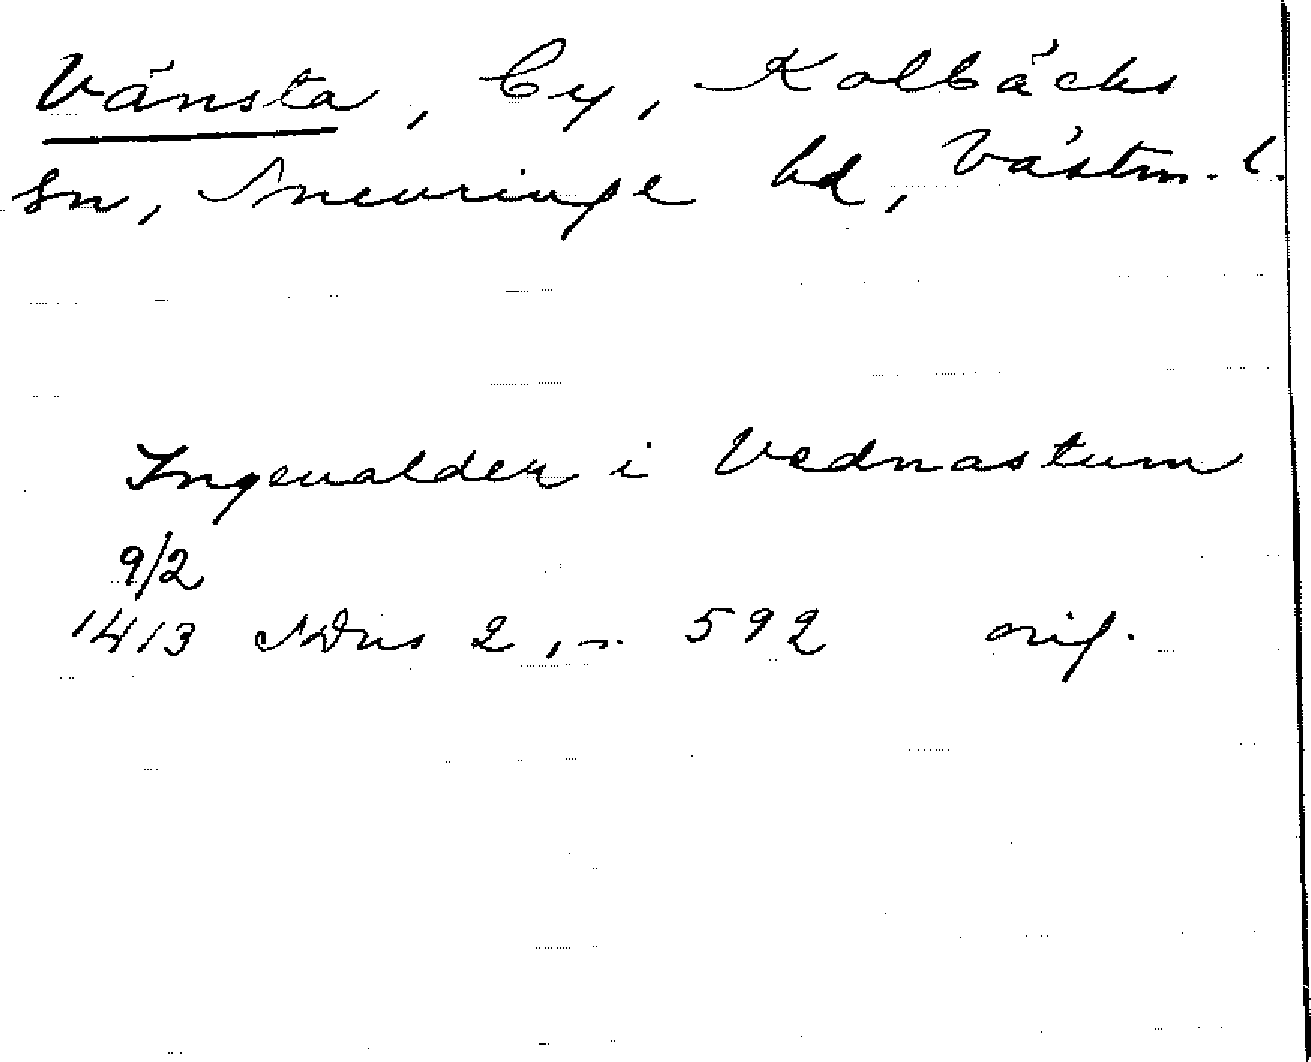 Vänsta, by, Kolbäcks
sn, Snevringe hd, Västm. l.
Ingeualder i Vednastum
9/2
1413 SDns 2, s. 592 orig.